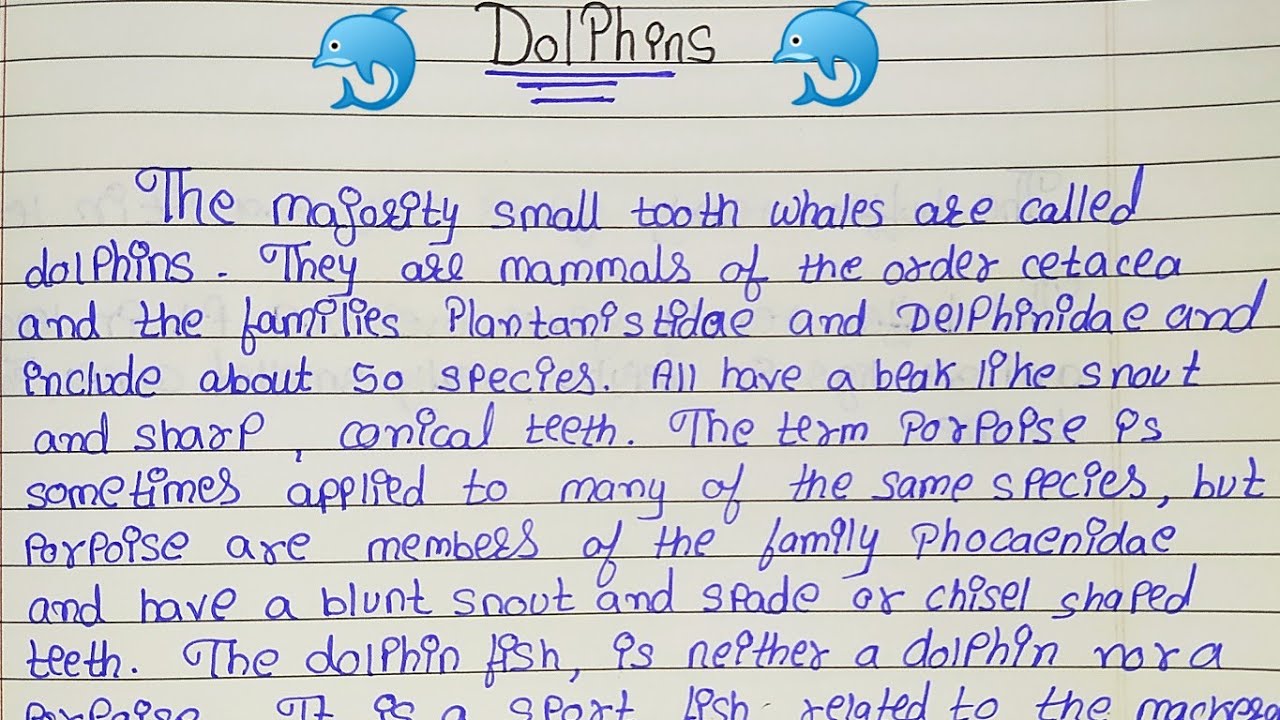 DolPhins
The majority small tooth whales are called
dolPhins. They are mammals of the order cetacea
and the families Plantanistidae and DelPhinidae and
include about 50 species. All have a beak like snout
and sharp, conical teeth. The term Porpoise is
sometimes applied to many of the same species, but
Porpoise are members of the family Phocaenidae
and have a blunt snout and spade or chisel shaped
teeth. The dolphin fish, is neither a dolphin nor a
Porpoise. It is a sport fish related to the